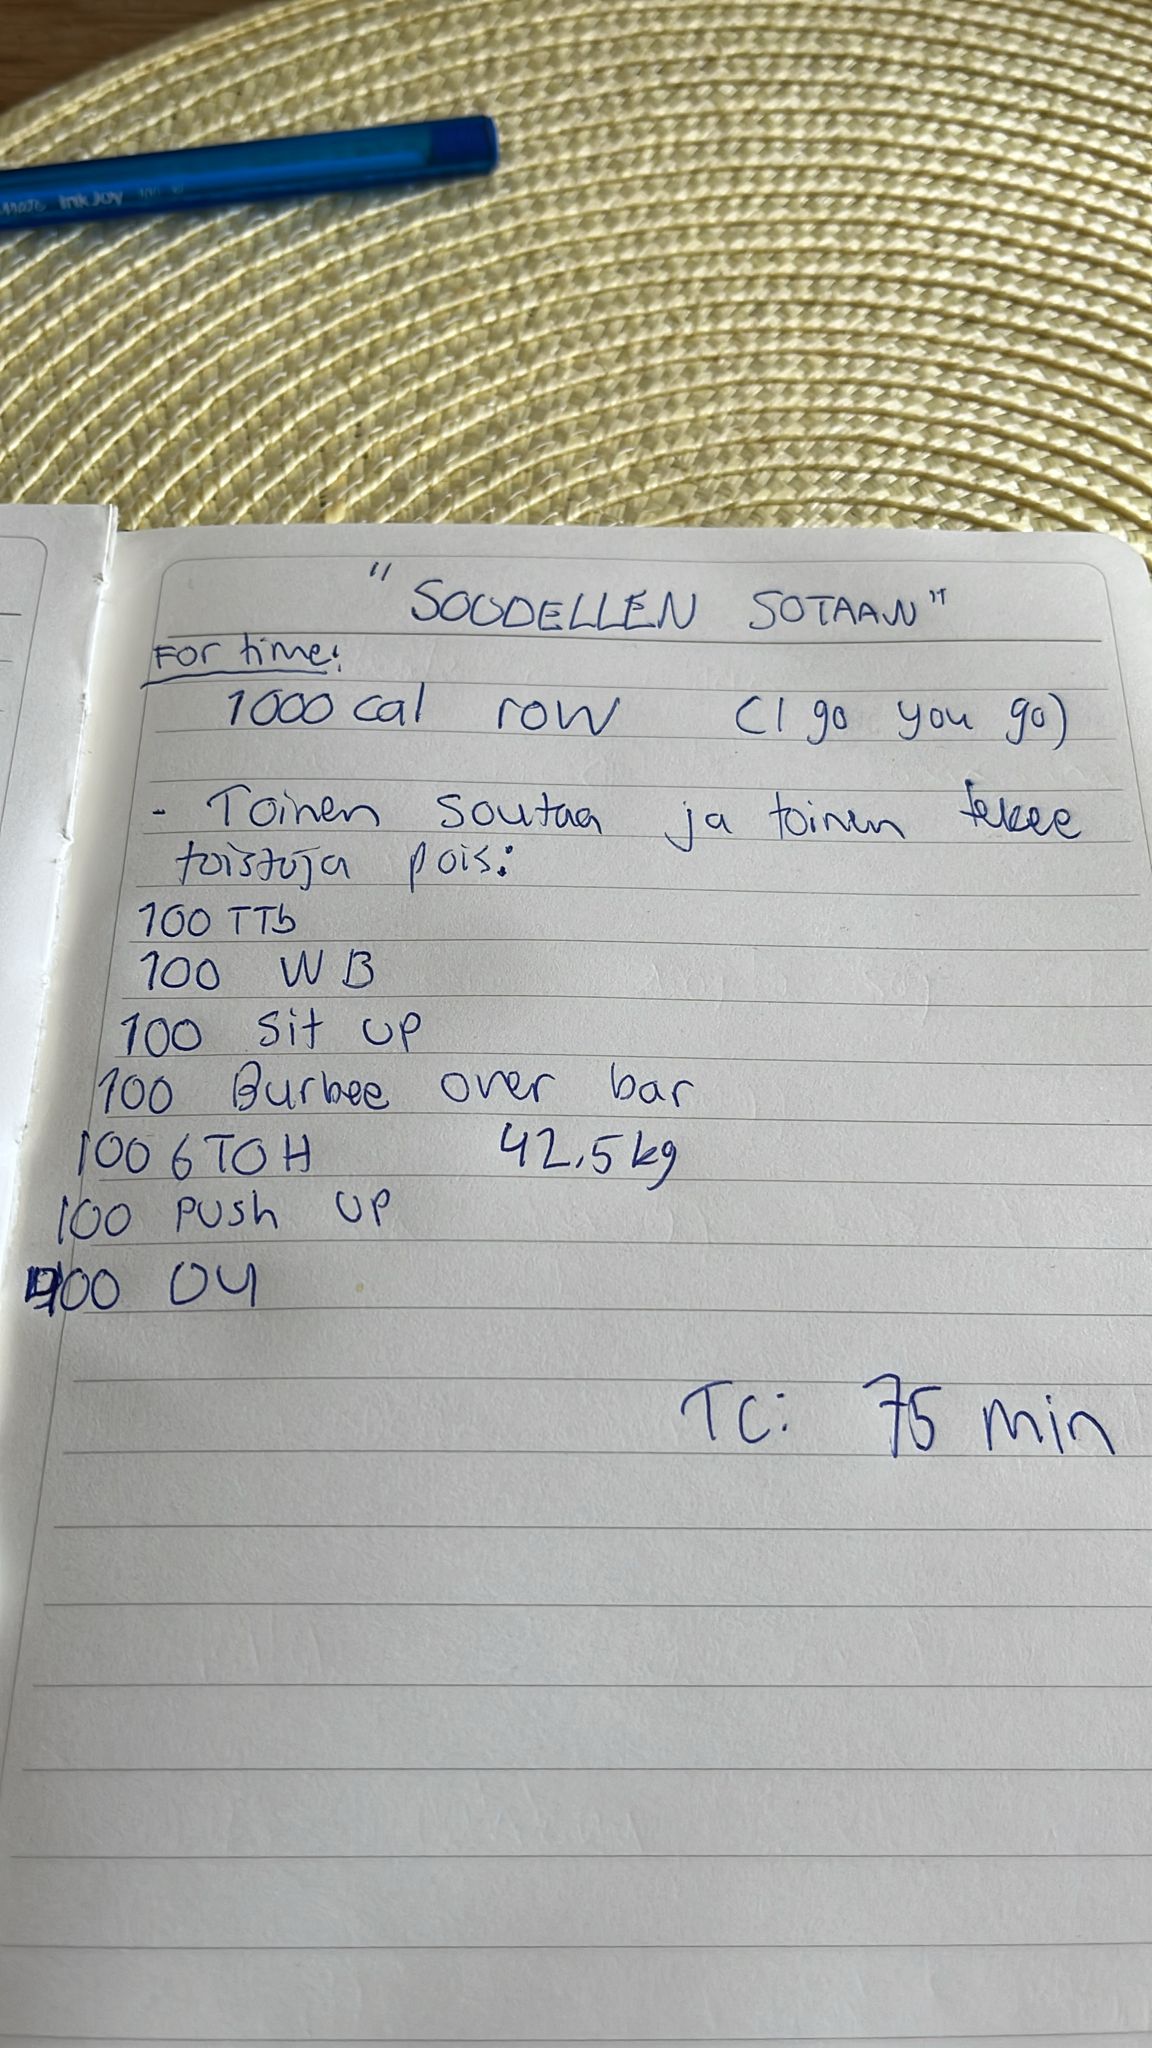 InkJoy 100
" SOUDELLEN SOTAAN"
For time:
1000 cal row (I go you go)
- Toinen soutaa ja toinen tekee
toistoja pois:
100 TTb
100 WB
100 sit up
100 Burbee over bar
100 GTOH 42,5kg
100 PUSH UP
400 DU
TC: 75 min